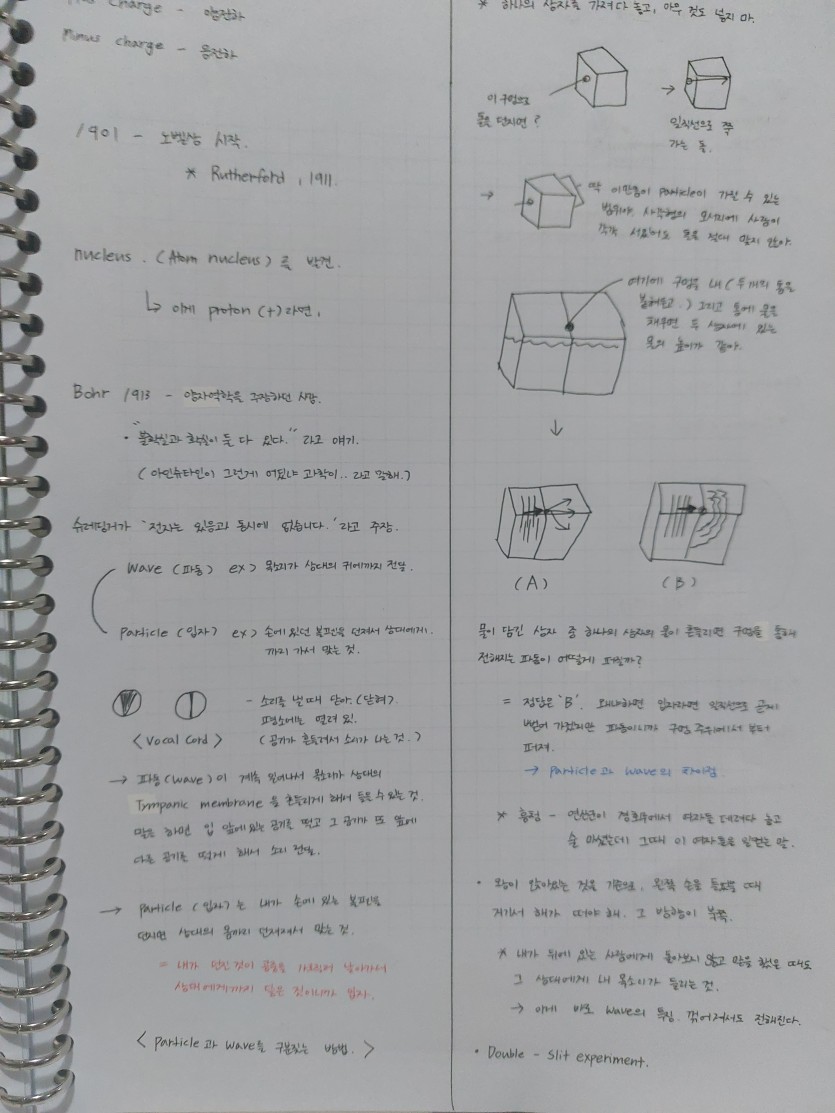 Plus charge - 양전하
Minus charge - 음전하
1901 - 노벨상 시작.
* Rutherford, 1911.
nucleus. (Atom nucleus)를 발견.
↳ 이게 proton (+)라면,
Bohr 1913 - 양자역학을 주장하던 사람.
• "불확실과 확실이 둘 다 있다." 라고 얘기.
(아인슈타인이 그런게 어딨냐 과학이.. 라고 말해.)
슈레딩거가 '전자는 있음과 동시에 없습니다.'라고 주장.
wave (파동) ex> 목소리가 상대의 귀에까지 전달.
particle (입자) ex> 손에 있던 볼펜을 던져서 상대에게
까지 가서 맞는 것.
- 소리를 낼 때 닫아. (닫혀).
평소에는 열려 있.
<Vocal Cord> (공기가 흔들려서 소리가 나는 것.)
→ 파동(wave)이 계속 일어나서 목소리가 상대의
Tympanic membrane을 흔들리게 해서 들을 수 있는 것.
말을 하면 입 앞에 있는 공기를 떨고 그 공기가 또 앞에
다른 공기를 떨게 해서 소리 전달.
→ particle (입자)는 내가 손에 있는 볼펜을
던지면 상대의 몸까지 던져져서 맞는 것.
= 내가 던진 것이 공중을 가로질러 날아가서
상대에게까지 닿은 것이니까 입자.
<particle과 wave를 구분짓는 방법.>
* 하나의 상자를 가져다 놓고, 아무 것도 넣지 마.
이 구멍으로
돌을 던지면?
→
일직선으로 쭉
가는 돌.
→
딱 이만큼이 particle이 가질 수 있는
범위야. 사각형의 모서리에 사람이
각각 서있어도 돌을 절대 맞지 않아.
여기에 구멍을 내 (두 개의 통을
붙여두고.) 그리고 통에 물을
채우면 두 상자에 있는
물의 높이가 같아.
↓
(A) (B)
물이 담긴 상자 중 하나의 상자의 물이 흔들리면 구멍을 통해
전해지는 파동이 어떻게 퍼질까?
= 정답은 'B'. 왜냐하면 입자라면 일직선으로 곧게
뻗어 가겠지만 파동이니까 구멍 주위에서 부터
퍼져.
→ particle과 wave의 차이점.
* 흥청 - 연산군이 경회루에서 여자들 데려다 놓고
술 마셨는데 그때 이 여자들을 일컫는 말.
• 왕이 앉아있는 것을 기준으로, 왼쪽 손을 들었을 때
거기서 해가 떠야 해. 그 방향이 북쪽.
* 내가 뒤에 있는 사람에게 돌아보지 않고 말을 했을 때도
그 상대에게 내 목소리가 들리는 것.
→ 이게 바로 wave의 특징. 꺾어져서도 전해진다.
• Double - slit experiment.